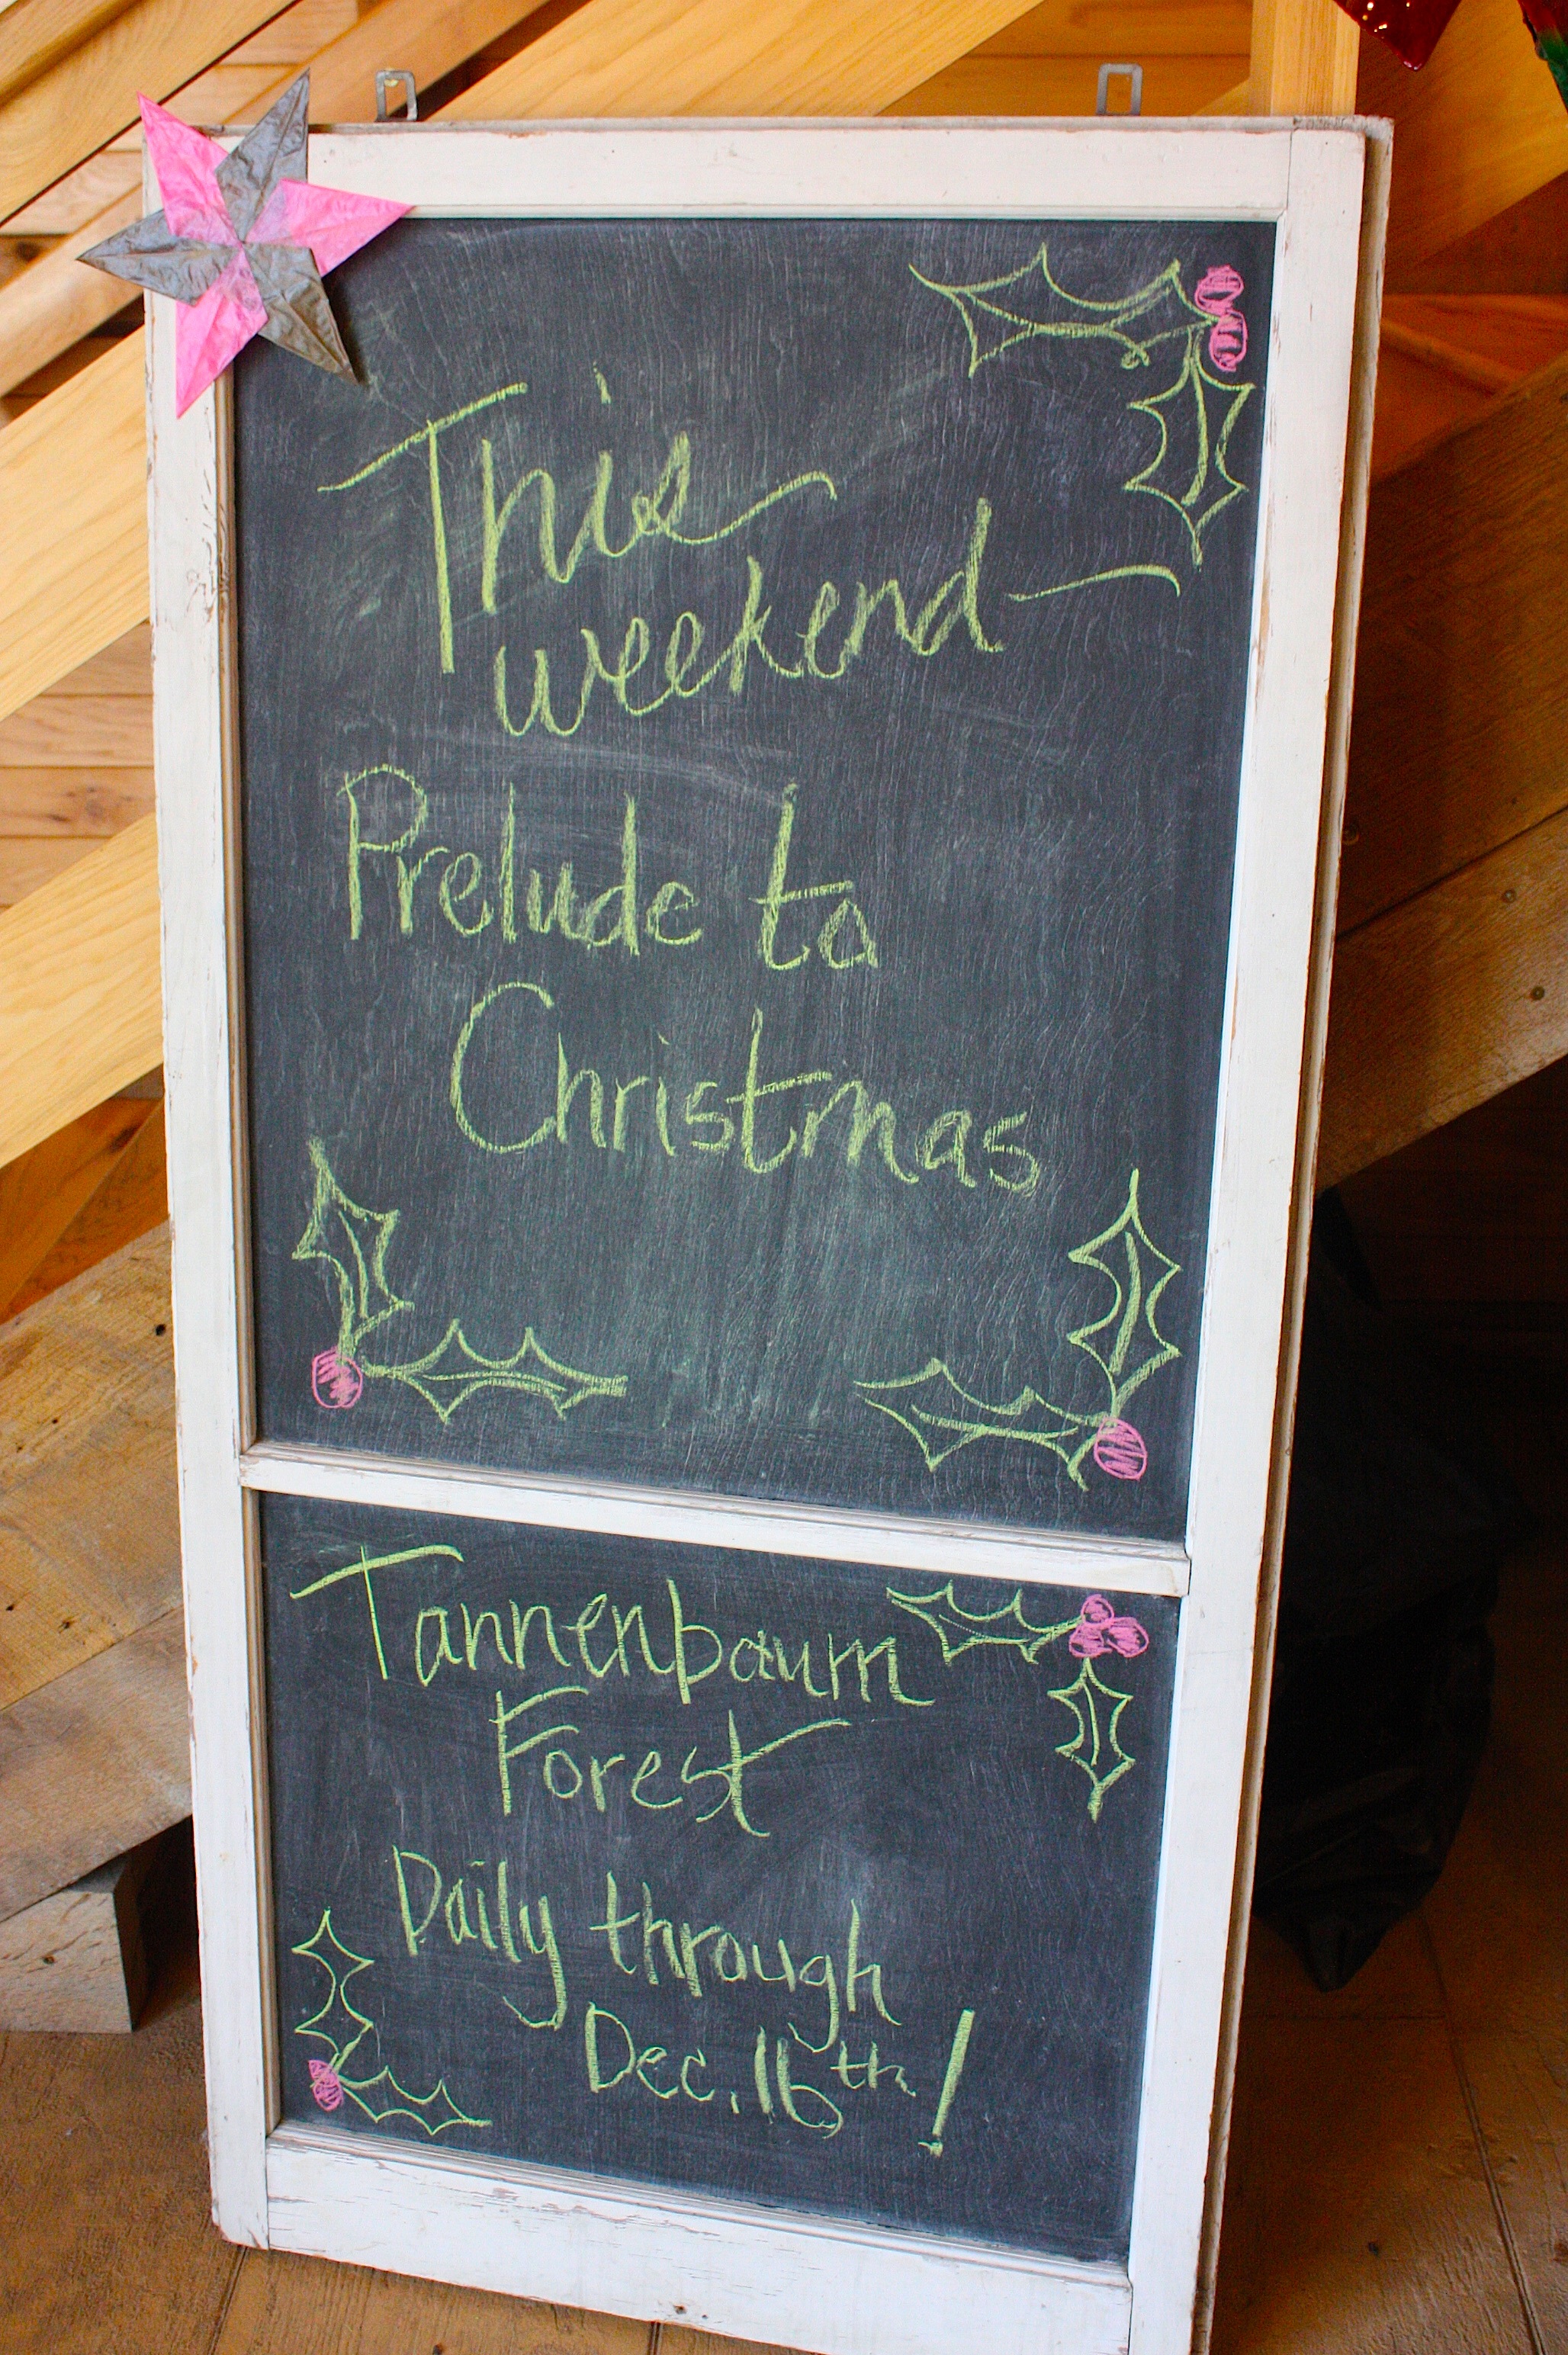 This
weekend—
Prelude to
Christmas
Tannenbaum
Forest
Daily through
Dec. 16th!